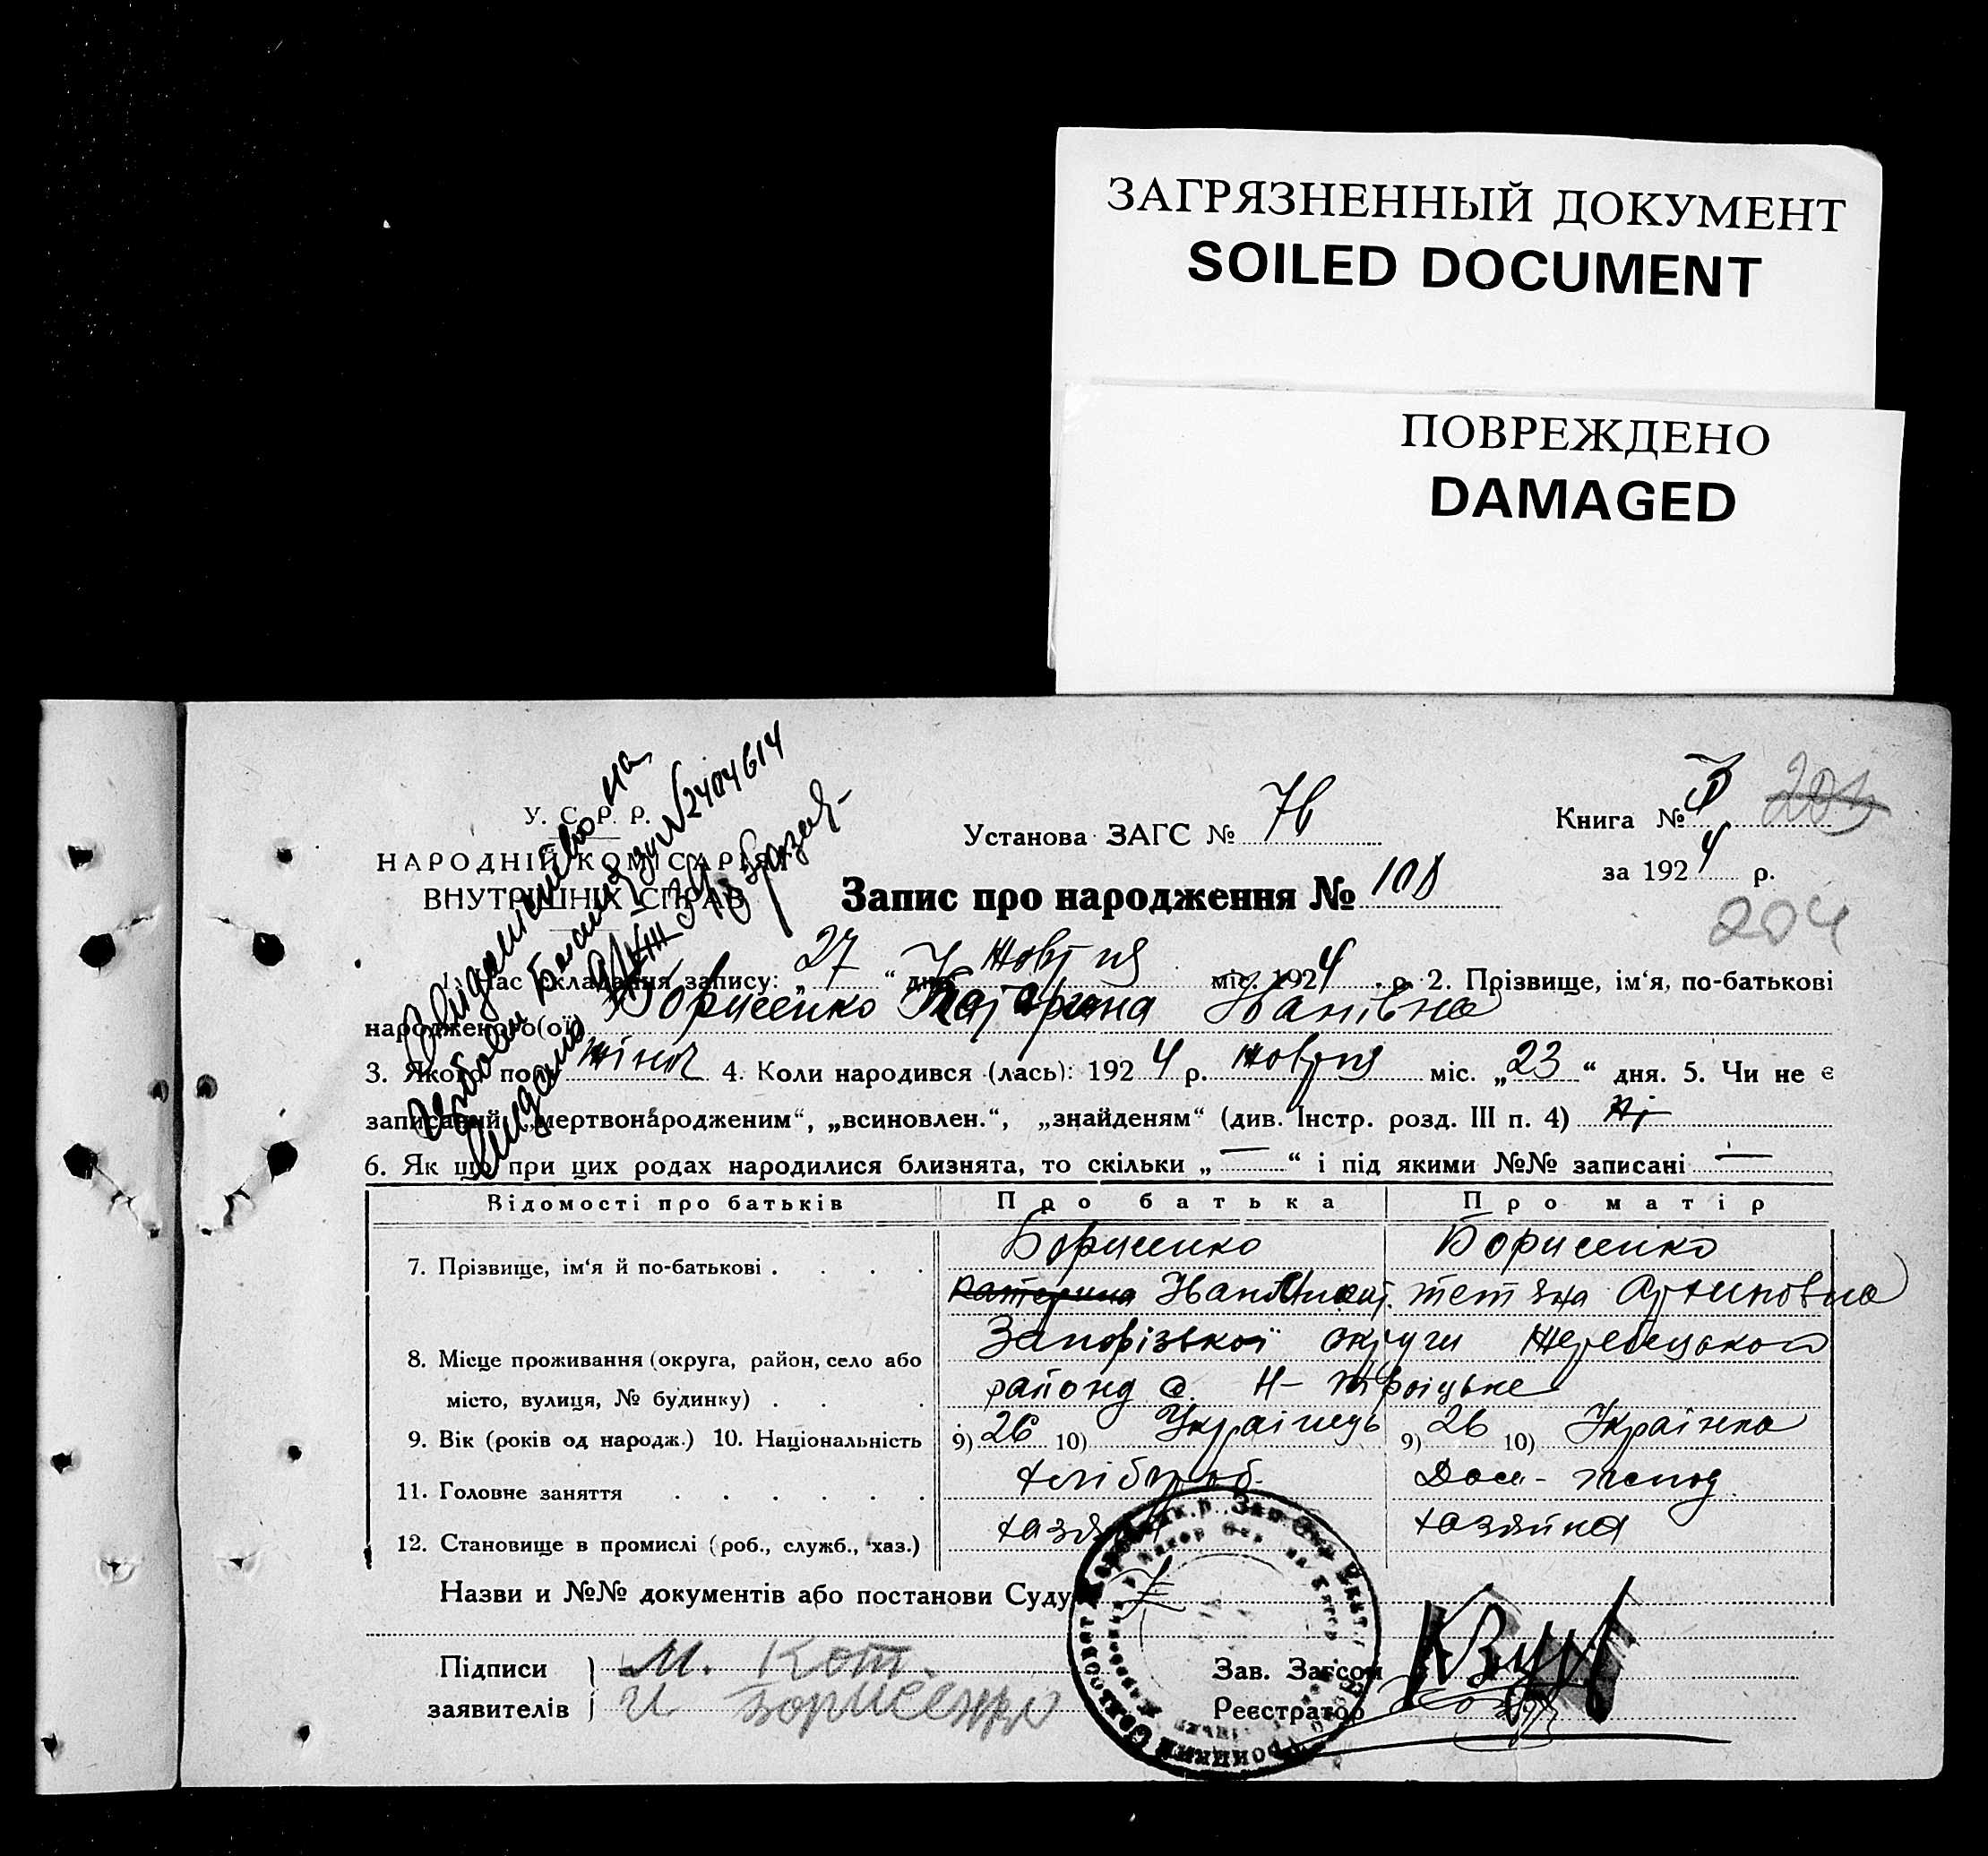 ЗАГРЯЗНЕННЫЙ ДОКУМЕНТ
SOILED DOCUMENT
ПОВРЕЖДЕНО
DAMAGED
У. С. Р. Р.
НАРОДНІЙ КОМІСАРІЯТ
ВНУТРІШНІХ СПРАВ
№ 2404614
Установа ЗАГС № 76
Книга №
204
за 1924 р.
204
Запис про народження № 108
1. Час складання запису: „27“ дня Жовтня міс. 1924 р. 2. Прізвище, ім'я, по-батькові
народженого(ої) Борисенко Катерина Іванівна
3. Якого полу жіноч 4. Коли народився (лась): 1924 р. жовтня міс. „23“ дня. 5. Чи не є
записаний „мертвонародженим“, „всиновлен.“, „знайденям“ (див. Інстр. розд. III п. 4) Ні
6. Як що при цих родах народилися близнята, то скільки „—“ і під якими №№ записані —
Відомості про батьків Про батька Про матір
7. Прізвище, ім'я й по-батькові . . . . Борисенко Борисенко
Катерина Іван Тетяна
8. Місце проживання (округа, район, село або Запорізької округи Жеребецького
місто, вулиця, № будинку) . . . району с. Н-Троіцьке
9. Вік (років од народж.) 10. Національність 9) 26 10) Українець 9) 26 10) Українка
11. Головне заняття . . . . . . хлібороб. Дом-
12. Становище в промислі (роб., служб., хаз.) хазяїн хазяйка
Назви и №№ документів або постанови Суду
Підписи М. Кот.
заявителів И Борисенко
Зав. Загсом
Реєстратор